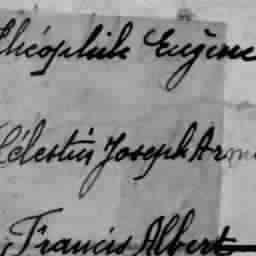 Théophile Eugène
Célestin Joseph Arm
Francis Albert